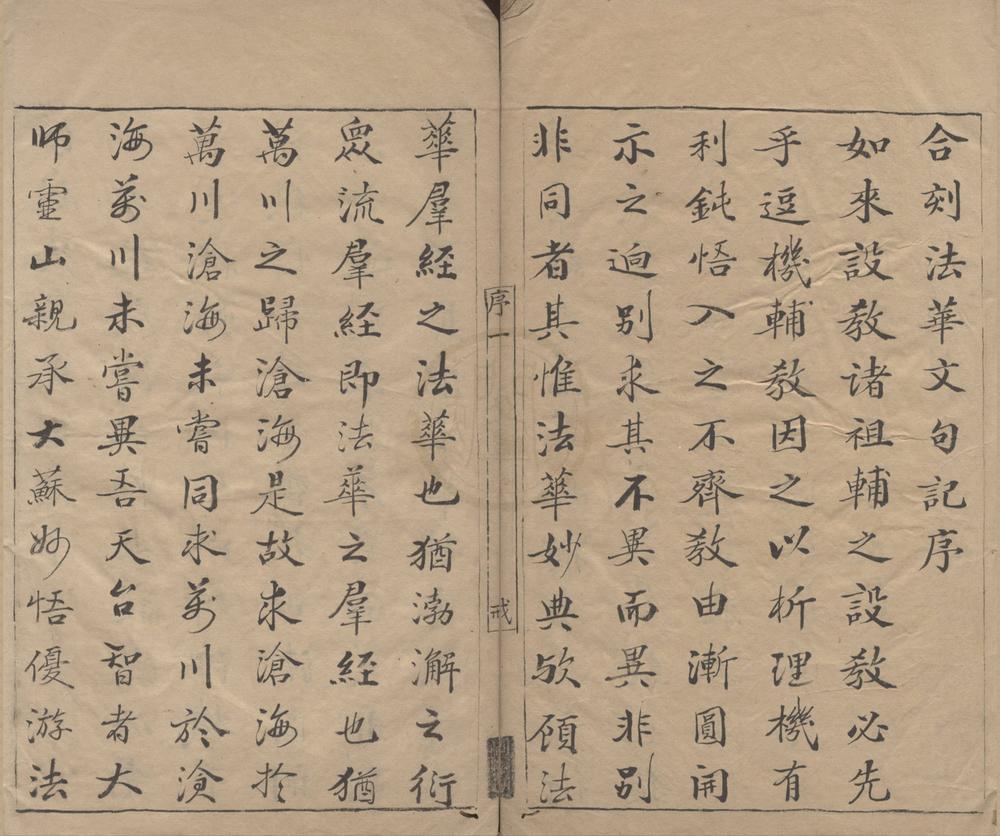 合刻法華文句記序
如來設敎諸祖輔之設敎必先
乎逗機輔敎因之以析理機有
利鈍悟入之不齊敎由漸圓開
示之逈別求其不異而異非別
非同者其惟法華妙典欤顧法
華羣經之法華也猶渤澥之衍
衆流羣經即法華之羣經也猶
萬川之歸滄海是故求滄海於
萬川滄海未嘗同求萬川於滄
海萬川未嘗異吾天台智者大
師靈山親承大蘇妙悟優游法
序一
戒